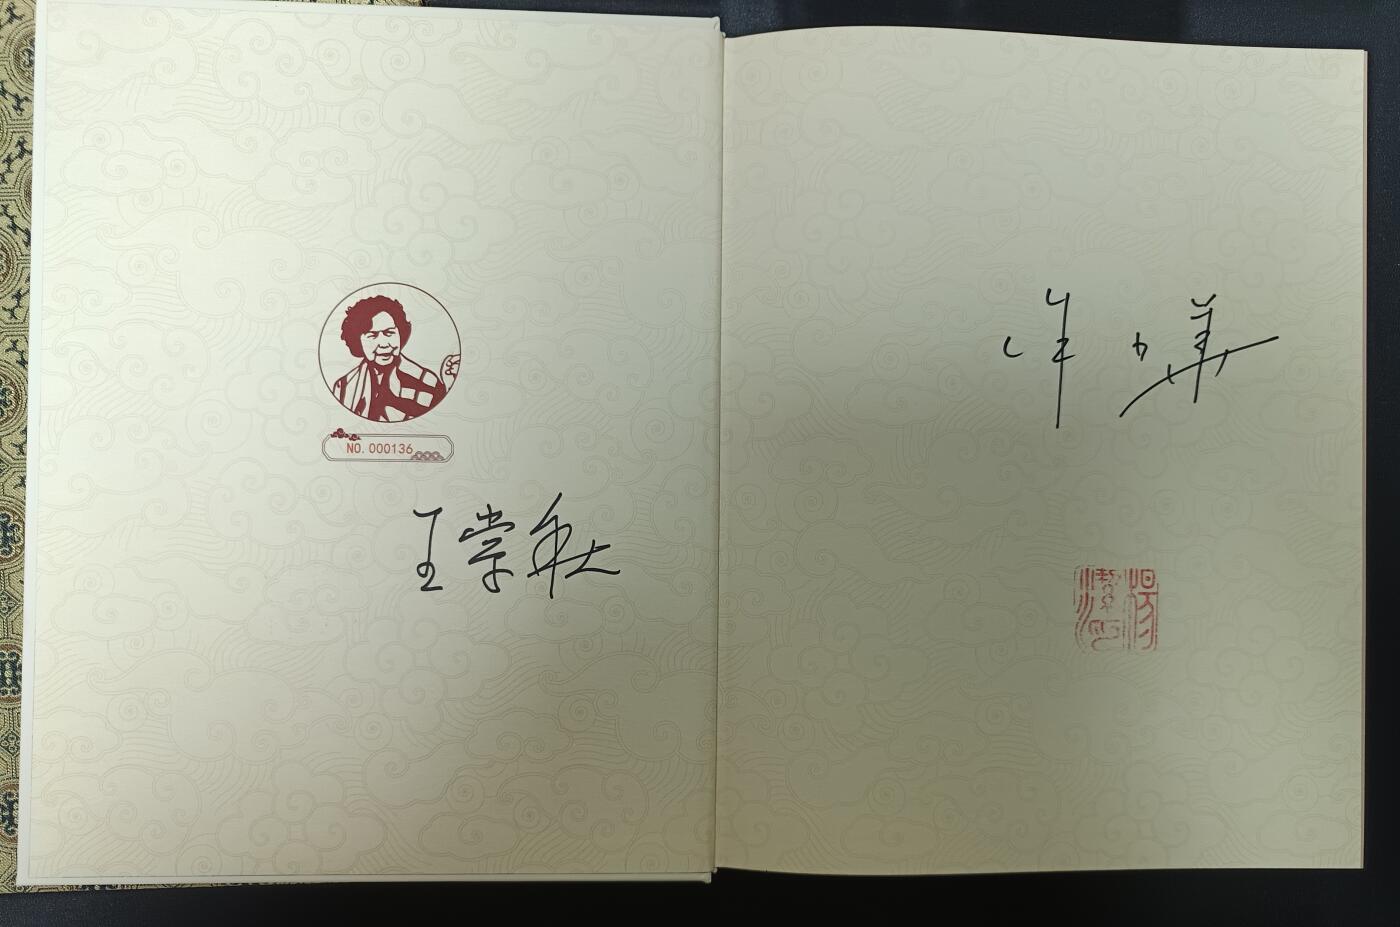 NO.000136
王崇秋
楊潔